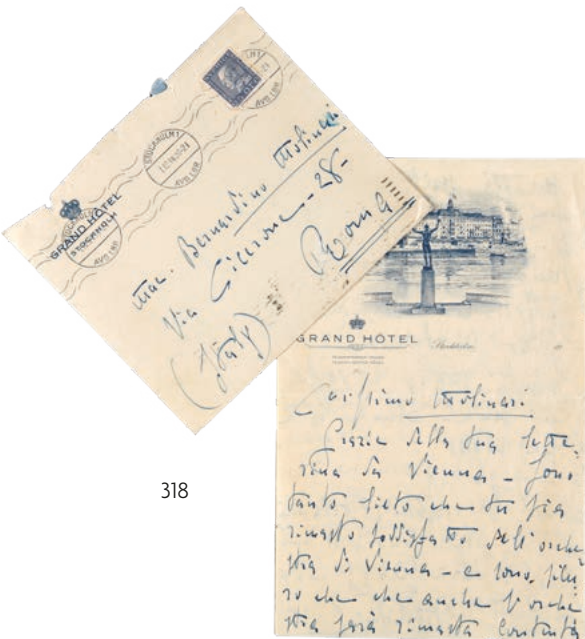 STOCKHOLM 1
AVG LBR
GRAND HÔTEL
STOCKHOLM
Mac. Bernardino Molinari
Via Cicerone - 28 -
Roma
(Italy)
GRAND HÔTEL
Stockholm
Carissimo Molinari
Grazie della tua lette-
rina da Vienna - Sono
tanto lieto che tu sia
rimasto soddisfatto dell'orche
stra di Vienna - e sono
che anche l'orche
stra sarà rimasta contenta
318